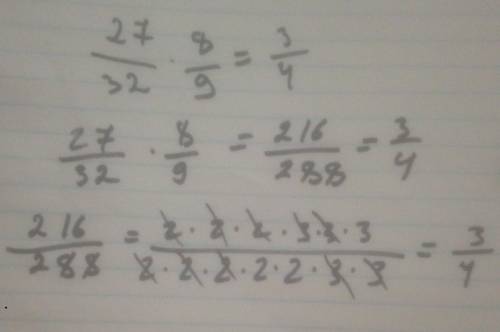 27/32 · 8/9 = 3/4
27/32 · 8/9 = 216/288 = 3/4
216/288 = 2 · 2 · 2 · 3 · 3 · 3/2 · 2 · 2 · 2 · 2 · 3 · 3 = 3/4